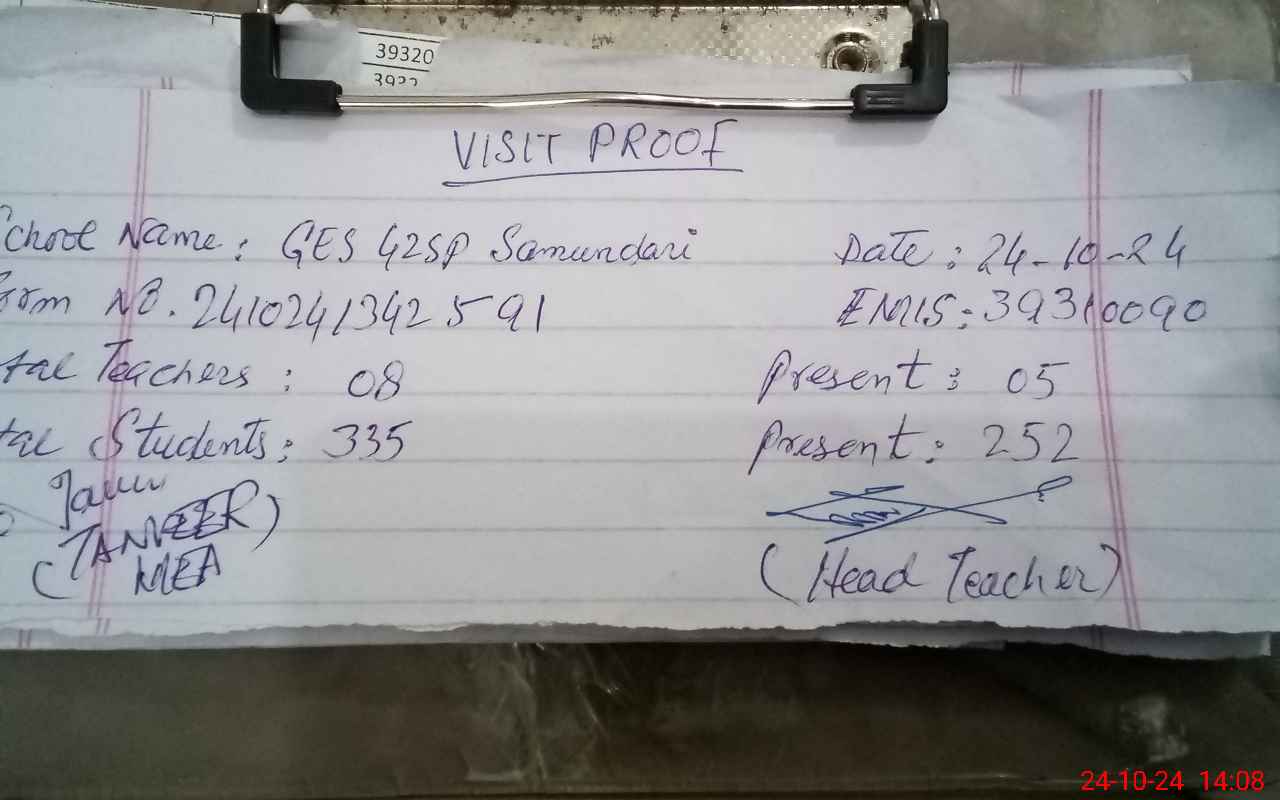 39320
3932
VISIT PROOF
School Name: GES 42SP Samundari Date: 24-10-24
Form NO. 24102413425591 EMIS: 39310090
Total Teachers: 08 Present: 05
Total Students: 335 Present: 252
(TANVEER) 
MEA
(Head Teacher)
24-10-24 14:08